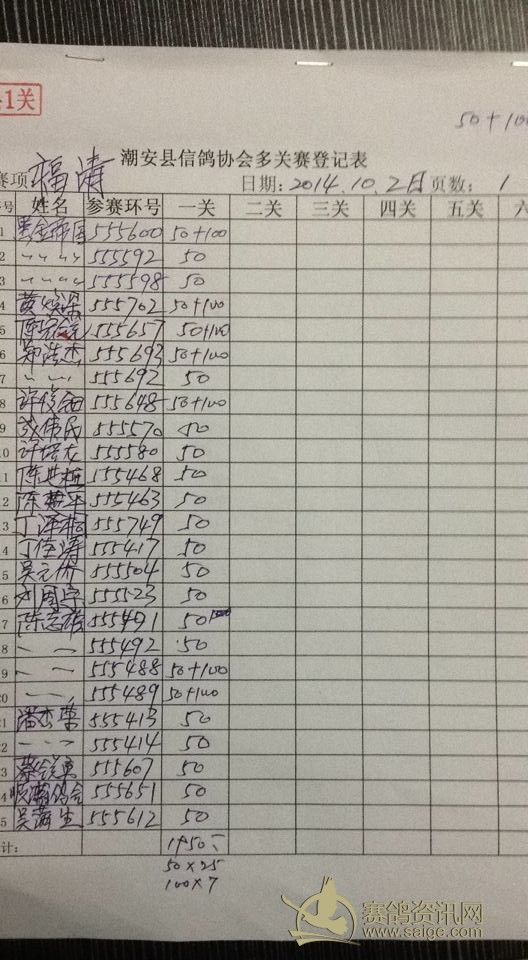 1关
50+100
潮安县信鸽协会多关赛登记表
赛项 福涛 日期: 2014.10.2日 页数: 1
序号 姓名 参赛环号 一关 二关 三关 四关 五关 六
1 555600 50+100
2 〃 〃 〃 〃 555592 50
3 〃 〃 〃 〃 555598 50
4 555702 50+100
5 555657 50+100
6 郑浩杰 555693 50+100
7 〃 〃 555692 50
8 555648 50+100
9 伟民 555570 50
10 555580 50
11 555468 50
12 555463 50
13 555749 50
14 丁佳涛 555417 50
15 吴元侨 555504 50
16 555523 50
17 陈志雄 555491 50
18 〃 〃 555492 50
19 〃 〃 555488 50+100
20 〃 〃 555489 50+100
21 潘杰荣 555413 50
22 〃 〃 555414 50
23 555607 50
24 555651 50
25 吴 生 555612 50
计: 1950
50×25
100×7
赛鸽资讯网
www.saige.com